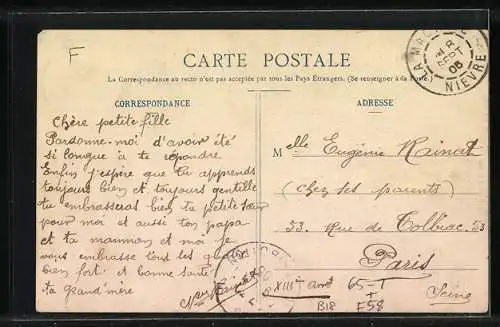 F
CARTE POSTALE
La Correspondance au recto n'est pas acceptée par tous les Pays Étrangers. (Se renseigner à la Poste.)
CORRESPONDANCE
ADRESSE
LA MAC
NIEVRE
05
Chère petite fille
Pardonne-moi d'avoir été
si longue à te répondre
Enfin j'espère que tu apprends
toujours bien et toujours gentille
tu embrasseras bien ta petite sœur
pour moi et aussi ton papa
et ta mamman et moi je
vous embrasse tous les
bien fort et bonne santé
ta grand'mère
Melle Eugénie Rainat
(chez ses parents)
53 Rue de Tolbiac 53
Paris
XIIIe arrt
Seine
B18
65-1
+
F58